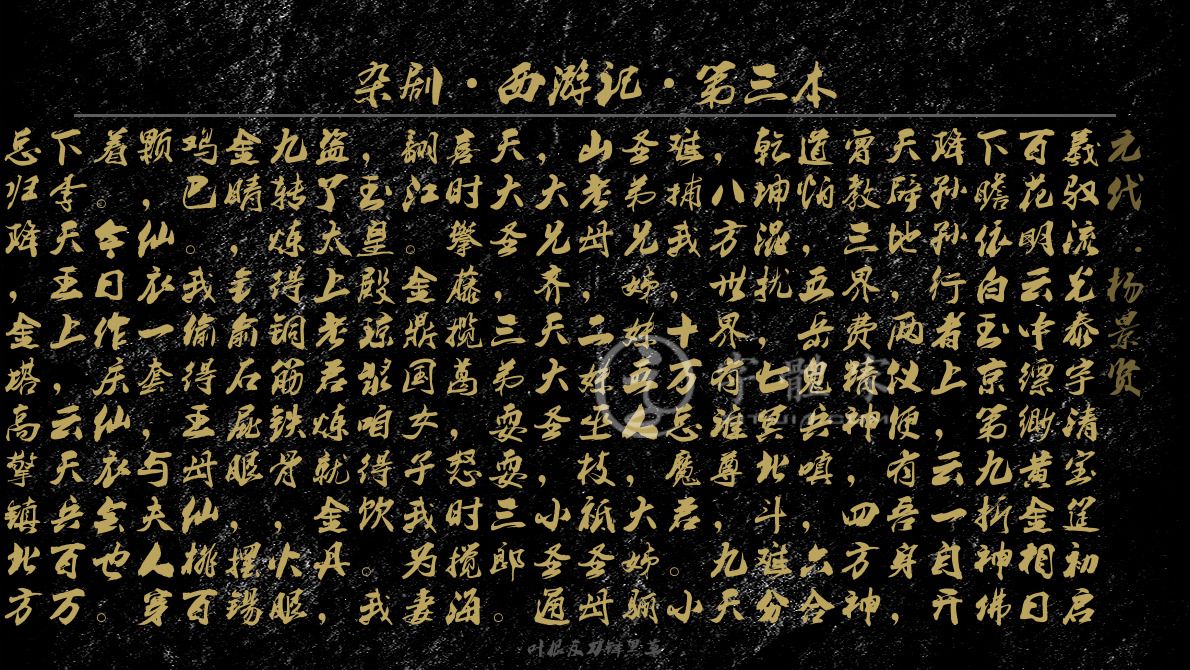 杂剧·西游记·第三本
元代·杨景贤
羲驭流光泰宇清宝筵初启
百花明云中缥缈黄金相日
下瞻依白玉京第九折神佛
降孙孙行者上，云一自开
天辟地，两仪便有吾身，
霄教三界费精神，四方神
道怕，五岳愧兵嗔，六合
乾坤混扰，七冥北斗难分
，八方世界有谁尊，九天
难捕我，十万总魔君。小
圣弟兄，姊妹五人，大姊骊
山老母，二姊巫枝祇圣母
，大兄齐天大圣，小圣通
天大圣，三弟耍耍三郎。
喜时攀藤揽葛，怒时揽海
翻江。金鼎国女子我为妻
，玉皇殿琼浆咱得饮我
盗了太上老君炼就金丹，
九转炼得铜筋铁骨，火眼
金睛，金俞石屁眼，摆锡
鸡巴。我偷得王母仙桃百
颗，仙衣一套，与夫人穿
着。今日作庆仙衣会也。
下李天王上，云天兵百万
总归降，金塔高擎镇北方
字體家